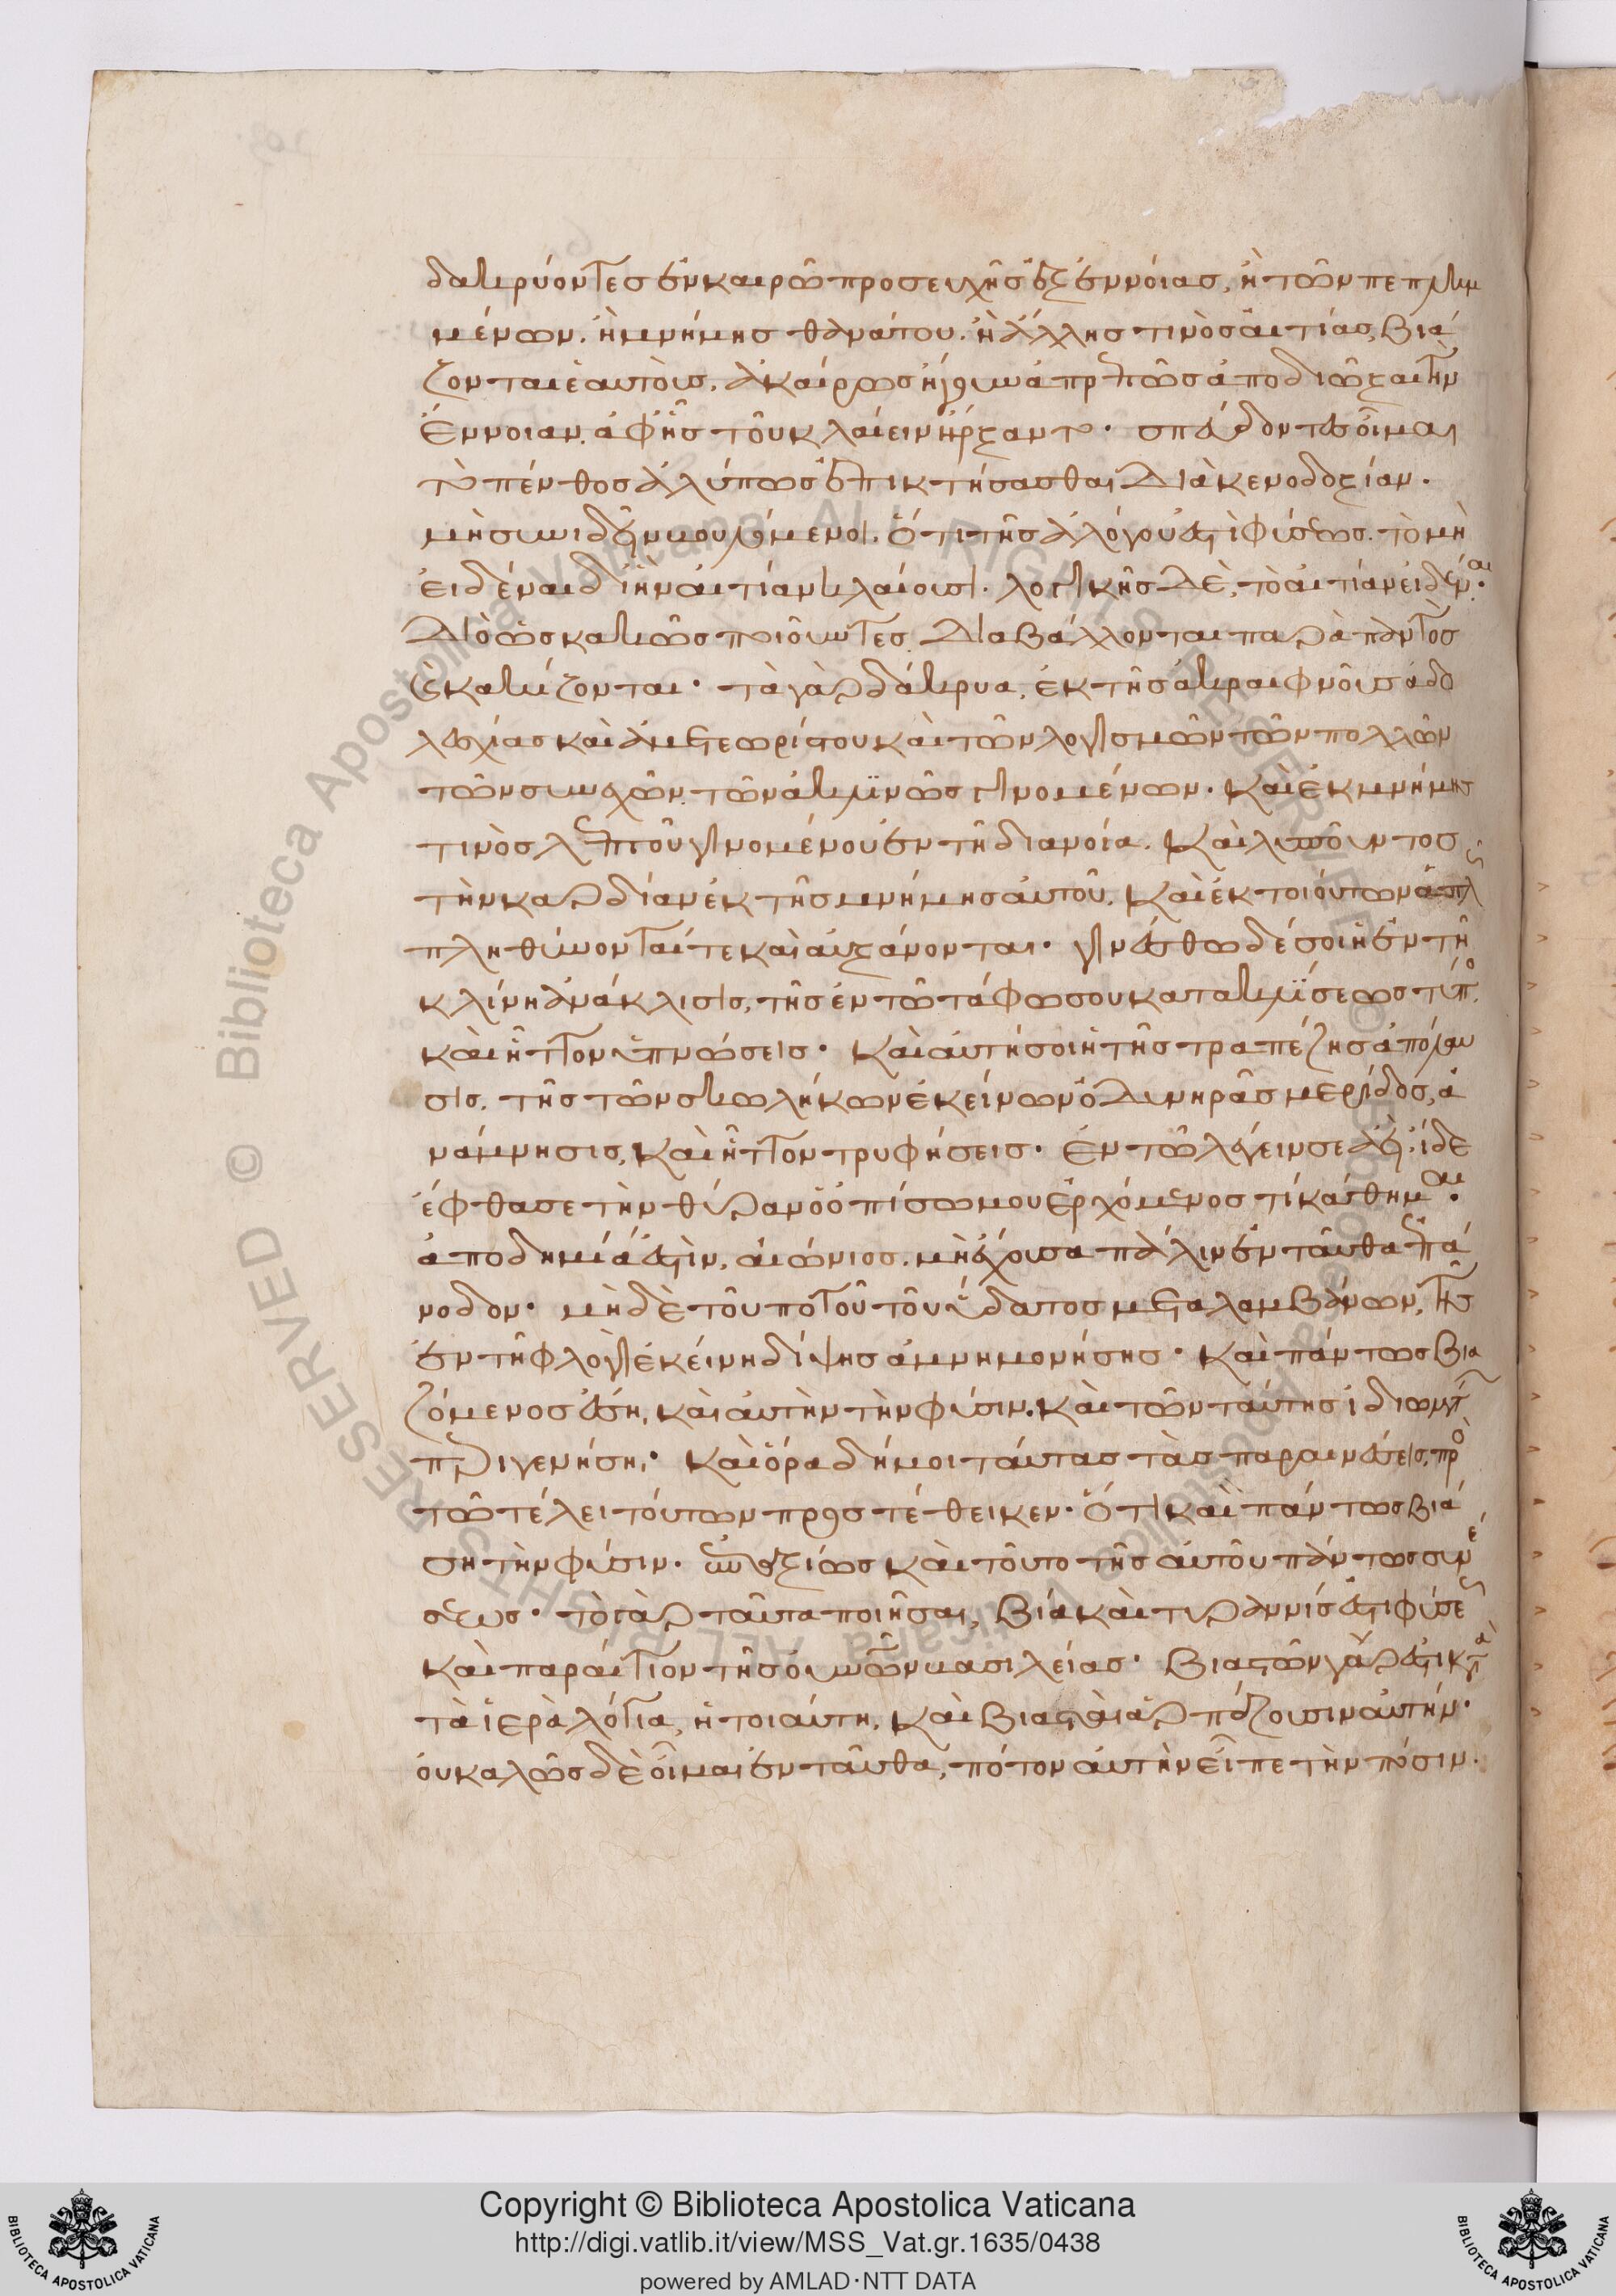 δακρύοντες ἐν καιρῶ προσευχῆς ἐξ ἐννοίας, ἢ τῶν πεπλημ
μένων. ἢ μνήμης θανάτου. ἢ ἄλλης τινὸς αἰτίας, βιά
ζονται ἑαυτοὺς. ἀκαίρως ἢ γοῦν ἀπρεπῶς ἀποδιῶξαι τὴν
ἔννοιαν. ἀφῆς τοῦ κλαίειν ἤρξαντο. σπεύδοντες οἶμαι
τὸ πένθος ἀλύπως ἐπικτήσασθαι διὰ κενοδοξίαν.
μὴ συνιδεῖν βουλόμενοι. ὅτι τῆς ἀλόγου ἐστὶ φύσεως. τὸ μὴ
εἰδέναι δι ἣν αἰτίαν κλαίουσι. λογικῆς δὲ, τὸ αἰτίαν εἰδέναι.
Διὸ ὡς κακῶς ποιοῦντες. Διαβάλλονται παρὰ παντὸς
καὶ κακίζονται. τὰ γὰρ δάκρυα, ἐκ τῆς ἀκραιφνοῦς ἀδο
λεσχίας καὶ ἀμετεωρίστου καὶ τῶν λογισμῶν τῶν πολλῶν
τῶν συνεχῶν. τῶν ἀκλινῶς γινομένων. Καὶ ἐκ μνήμης
τινὸς λεπτοῦ γινομένου ἐν τῆ διανοία. Καὶ λυποῦντος
τὴν καρδίαν ἐκ τῆς μνήμης αὐτοῦ. Καὶ ἐκ τοιούτων
πληθύνονταί τε καὶ αὐξάνονται. γινέσθω δέ σοι ἡ ἐν τῆ
κλίνη ἀνάκλισις, τῆς ἐν τῶ τάφω σου κατακλίσεως τύπος.
καὶ ἧττον ὑπνώσεις. Καὶ αὐτή σοι ἡ τῆς τραπέζης ἀπόλαυ
σις. τῆς τῶν σκωλήκων ἐκείνων ὀδυνηρᾶς μερίδος, ἀ
νάμνησις, καὶ ἧττον τρυφήσεις. Ἐν τῶ λέγειν σε ἀεὶ. ἰδε
ἔφθασε τὴν θύραν ὁ ὀπίσω μου ἐρχόμενος τί κάθημαι.
ἀποδημία ἐστὶν, αἰώνιος. μὴ ἔχουσα πάλιν ἐνταῦθα ἐπά
νοδον. μὴδὲ τοῦ ποτοῦ τοῦ ὕδατος μεταλαμβάνων, τῆς
ἐν τῆ φλογὶ ἐκείνη δίψης ἀμνημονήσης. καὶ πάντως βια
ζόμενος ἔση, καὶ αὐτὴν τὴν φύσιν. καὶ τῶν ταύτης ἰδιωμάτων
περιγενήση. Καὶ ὅρα δή μοι ταύτας τὰς παραινέσεις, πρὸ
τῶ τέλει τούτων προστέθεικεν. ὅτι καὶ πάντως βιά
ση τὴν φύσιν. ἐπαξίως καὶ τοῦτο τῆς αὐτοῦ πάντως συνέ
σεως. τὸ γὰρ ταῦτα ποιῆσαι, βία καὶ τυραννίς ἐστι φύσεως
καὶ παραίτιον τῆς οὐρανῶν βασιλείας. βιαστῶν γάρ ἐστι κατὰ
τὰ ἱερὰ λόγια, ἡ τοιαύτη. καὶ βιασταὶ ἁρπάζουσιν αὐτήν.
οὐ καλῶς δὲ οἶμαι ἐνταῦθα, πότον αὐτὴν εἶπε τὴν πόσιν.
Copyright © Biblioteca Apostolica Vaticana
http://digi.vatlib.it/view/MSS_Vat.gr.1635/0438
powered by AMLAD·NTT DATA